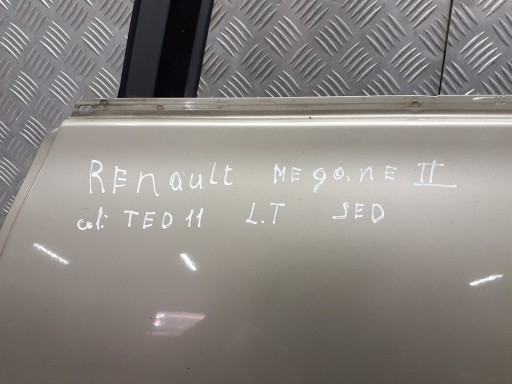 Renault Megane II
col: TED 11 L.T SED